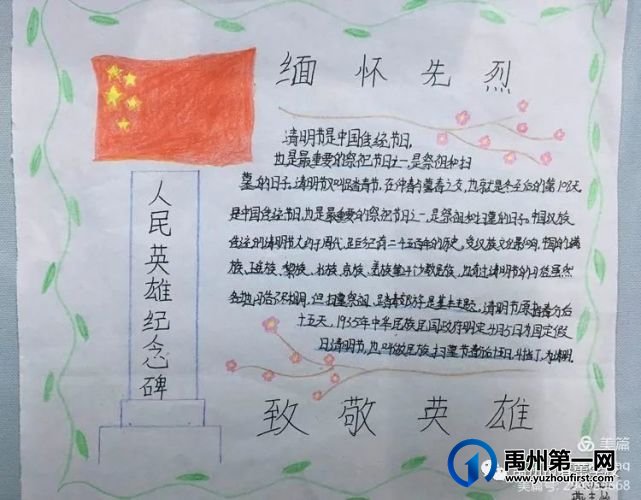 缅怀先烈
清明节是中国传统节日,
也是最重要的祭祀节日之一,是祭祖和扫
墓的日子。清明节又叫踏青节,在仲春与暮春之交,也就是冬至后的第108天
是中国传统节日,也是最重要的祭祀节日之一,是祭祖和扫墓的日子。中国汉族
传统的清明节大约于周代,距今已有二千五百年的历史,受汉族文化影响,中国的满
族、族、黎族、水族、京族、羌族等少数民族,也有过清明节的习俗虽然
各地习俗不相同,但扫墓祭祖、踏青郊游是基本主题。清明节原指春分后
十五天,1935年中华民国政府明定4月5日为国定假
日清明节,也叫民族扫墓节
人民英雄纪念碑
致敬英雄
美篇
美篇号:
禹州第一网
www.yuzhoufirst.com